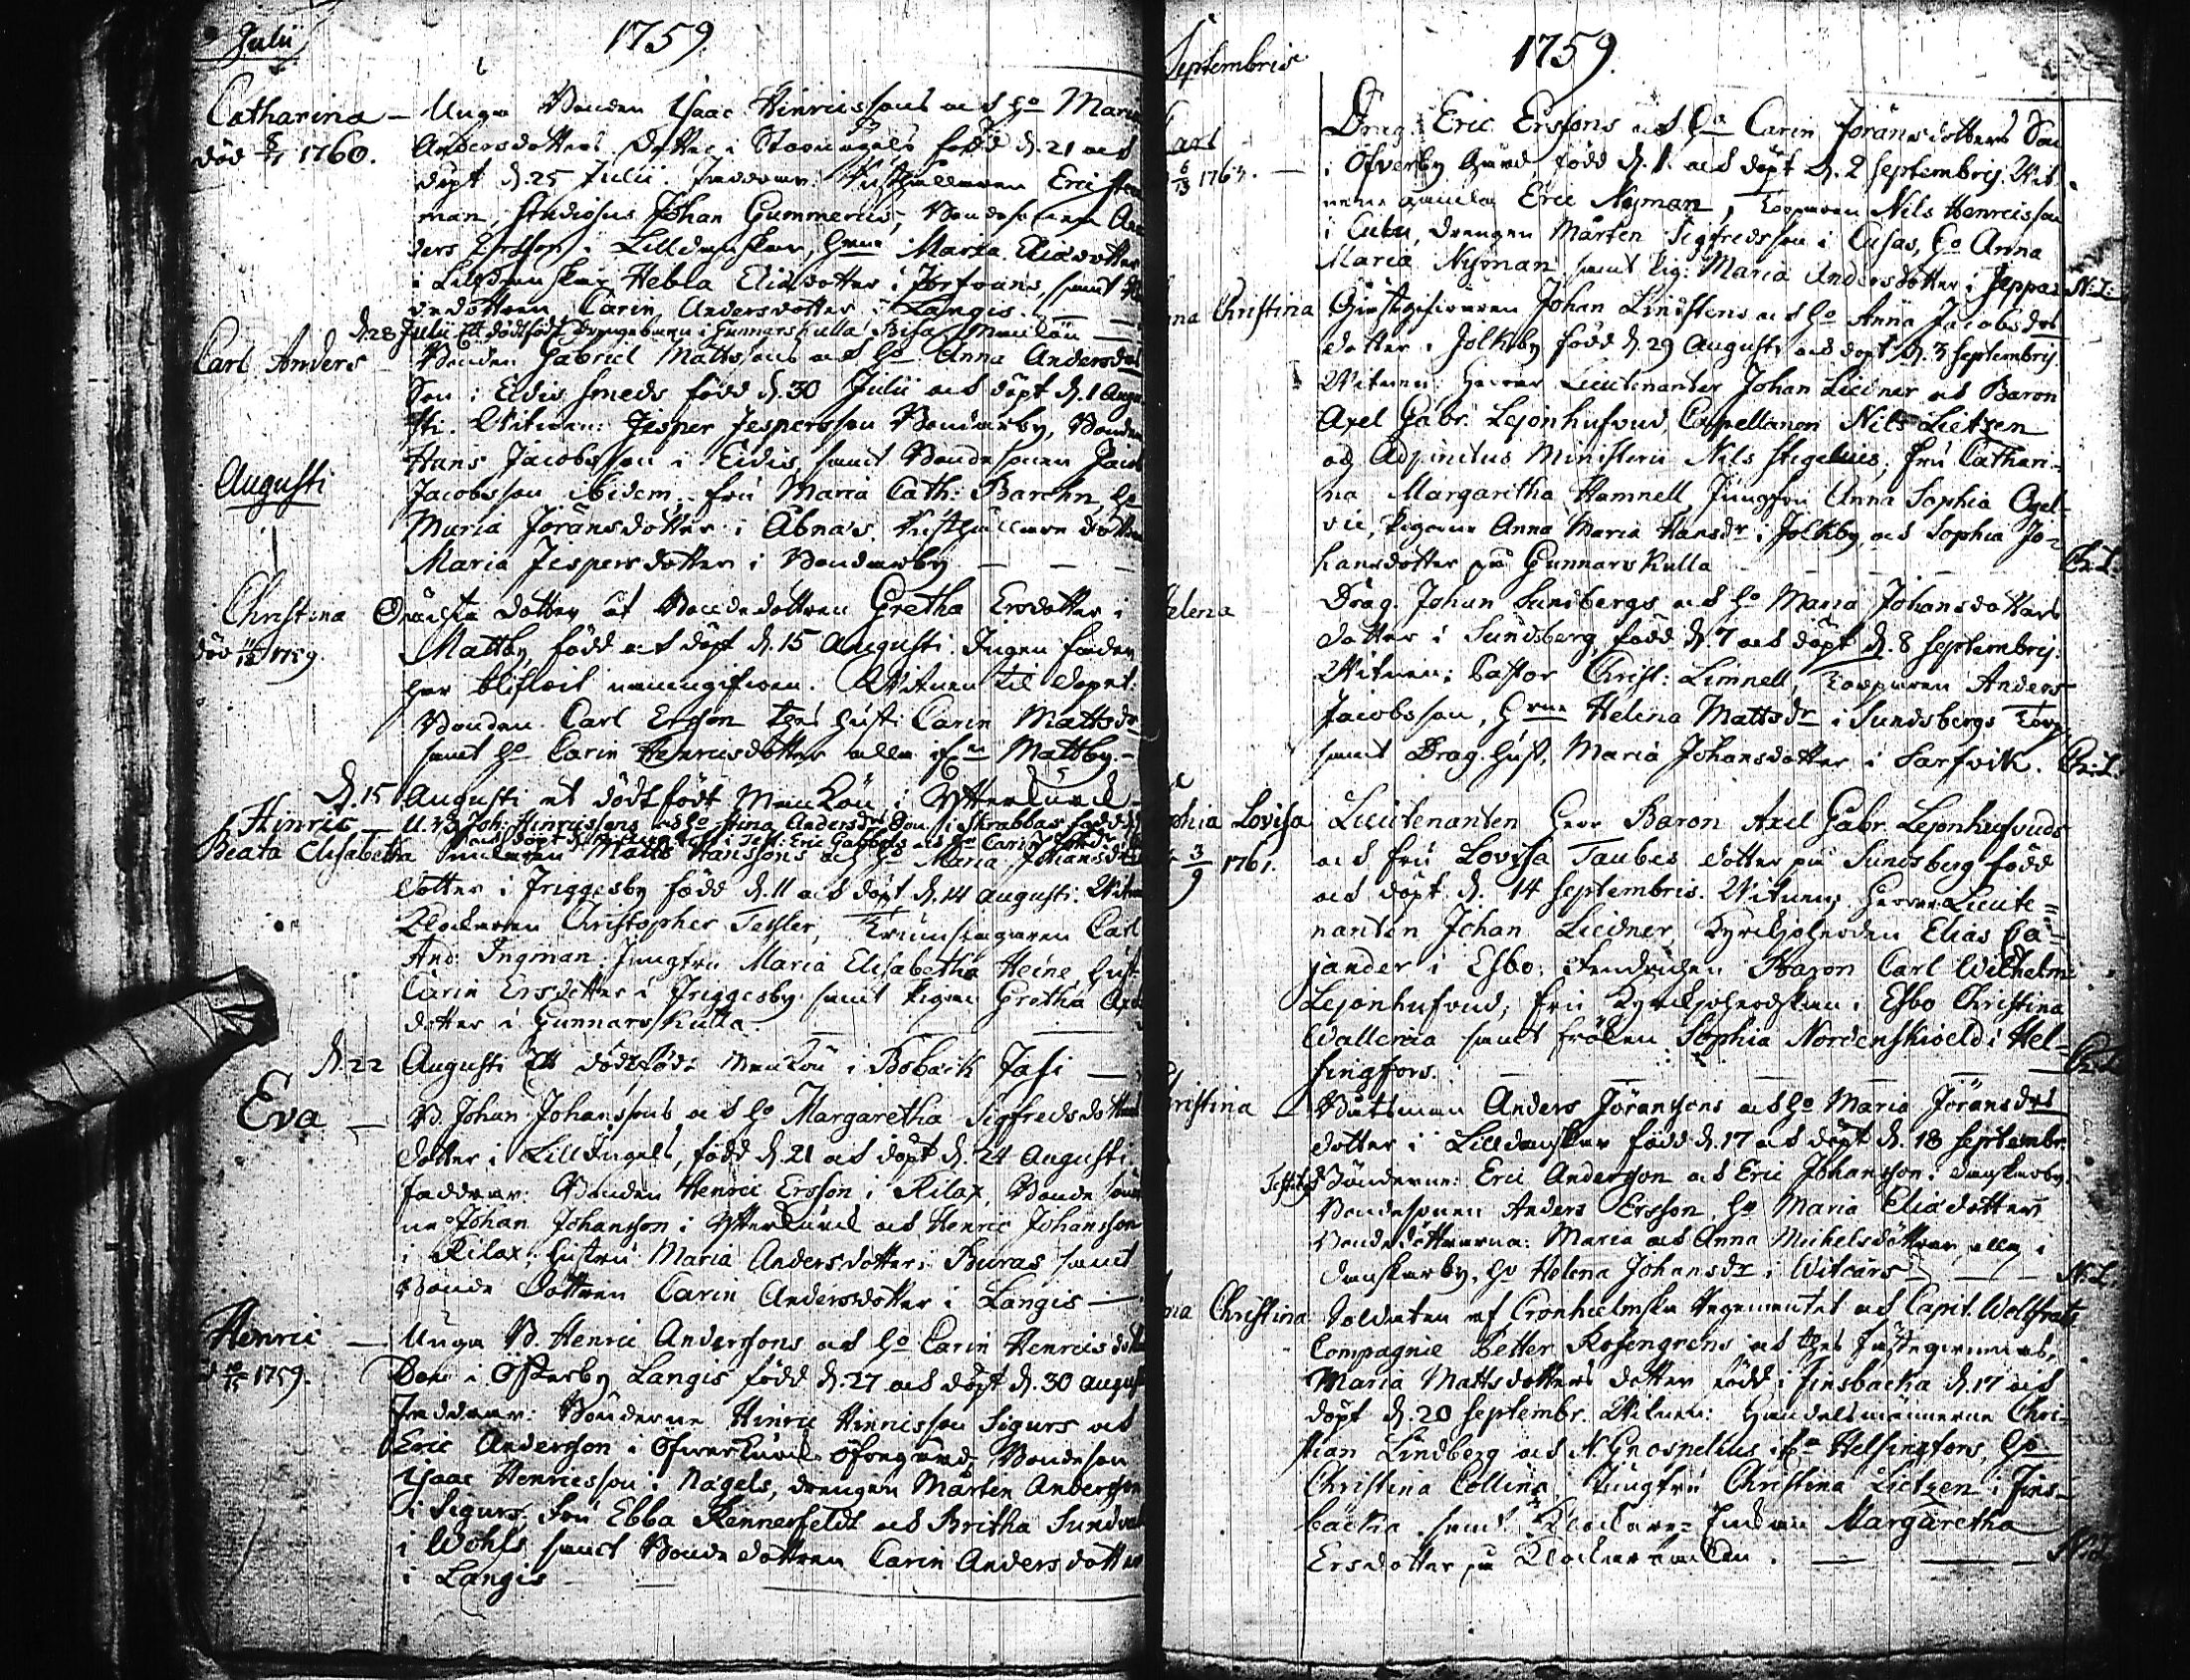 Julii
1759
Catharina — Unga Bonden Isaac Hinricssons och ho Maria
död 8/1 1760. Andersdotters dotter i Stornagels född d. 21 och
döpt d. 25 Julii. Faddrar: Rusthållaren Eric
man, Studiosus Johan Gummerus, Bondesonen An
ders Ersson i Lilldanskar, Maria Eliædotter
i Lilldanskar, Hebla Eliædotter i Torfvans, samt
dedottren Carin Andersdotter i Langis.
d. 28 Julii Ett dödfödt drängebarn i Gunnarskulla Bisa Mankön
Carl Anders Bonden Gabriel Mattssons och ho Anna Andersdotters
Son i Edis Smeds född d. 30 Julii och döpt d. 1 Augu
sti. Witnen: Jesper Jespersson Bondarby, Bonden
Hans Jacobsson i Eidis, samt Bondesonen Jacob
Augusti
Jacobsson ibidem, fru Maria Cath: Barchn, ho
Maria Jöransdotter i Åbnäs, Rusthållare dottren
Maria Jespersdotter i Bondarby
Christina Oächta dotter af Bondedottren Gretha Ersdotter i
död 11/12 1759. Mattby, född och döpt d. 15 Augusti. Ingen fader
har blifvit namngifven. Witnen til dopet:
Bonden Carl Ersson thes hust: Carin Mattsdr
samt ho Carin Henricsdotter alla ifrån Mattby.
d. 15 Augusti et dödtfödt Mankön i Ytterkurck
Hinric — U. B. Joh: Hinricssons och ho Stina Andersdrs Son i Skrabbas född
Beata Elisabetha Matts Hanssons och ho Maria Johansdrs
dotter i Friggesby född d. 11 och döpt d. 14 Augusti. Witn
Klockaren Christopher Tessler, Trumslagaren Carl
And: Ingman, Jungfru Maria Elisabetha Heine, hust.
Carin Ersdotter i Friggesby samt Pigan Gretha
dotter i Gunnarskulla.
d. 22 Augusti Ett dödtfödt Mankön i Bobäck Jasi
Eva — B. Johan Johanssons och ho Margaretha Sigfredsdotters
dotter i Lill Ingels, född d. 21 och döpt d. 24 Augusti.
Faddrar: Bonden Henric Ersson i Rilax, Bonde söner
ne Johan Johansson i Ytterkurck och Henric Johansson
i Rilax, hustru Maria Andersdotter i Buras samt
Bonde Dottren Carin Andersdotter i Langis —
Henric — Unga B. Henric Anderssons och ho Carin Henricsdotters
1759. Son i Österby Langis född d. 27 och döpt d. 30 August
Faddrar: Bönderne Hinric Hinricsson Sigurs och
Eric Andersson i Öfverkurck Öfvergård, Bondeson
Isaac Henricsson i Nägels, drengen Mårten Andersson
i Sigurs, fru Ebba Rennerfeldt och Britha Sundva
i Wohls samt Bonde dottren Carin Andersdotter
i Langis
Septembris
1759.
Carl Drag. Eric Erssons och ho Carin Jöransdotters Son
6/13 1763. — i Öfverby Gård, född d. 1. och döpt d. 2 Septembris. Wit
nen gamla Eric Nyman, Torparen Nils Henricsson
i Cuba, Drengen Mårten Sigfredsson i Cusas, ho Anna
Maria Nyman samt Pig: Maria Andersdotter i Jeppas N: L:
na Christina Giästgifvaren Johan Lindstens och ho Anna Jacobsdrs
dotter i Jolkby född d. 29 Augusti och döpt d. 3 Septembris.
Witnen: Herrar Lieutenanter Johan Liedner och Baron
Axel Gabr. Lejonhufvud, Capellanen Nils Lietzen
och Adjunctus Ministerii Nils Stigelius, fru Cathari
na Margaretha Hamnell, Jungfru Anna Sophia Ogel
vie, Pigorne Anna Maria Hansdr i Jolkby och Sophia Jo
hansdotter på Gunnarskulla Ch: L.
elena Drag. Johan Sundbergs och ho Maria Johansdotters
dotter i Sundsberg, född d. 7 och döpt d. 8 Septembris.
Witnen: Pastor Christ: Limnell, Torparen Anders
Jacobsson, Helena Mattsdr i Sundsbergs Torp
samt Drag. hust. Maria Johansdotter i Sarfvik. Ch: L.
phia Lovisa Lieutenanten Herr Baron Axel Gabr. Lejonhufvuds
3/9 1761. och fru Lovisa Taubes dotter på Sundsberg född
och döpt d. 14 Septembris. Witnen: Herrar Lieute
nanten Johan Liedner, Kyrckjoherden Elias Ca
jander i Esbo, Fendricken Baron Carl Wilhelm
Lejonhufvud, fru Kyrckjoherdskan i Esbo Christina
Wallenia samt fröken Sophia Nordenskiöld i Hel-
singfors. Ch: L.
hristina — Båtsman Anders Jöranssons och ho Maria Jöransdrs
dotter i Lilldanskar född d. 17 och döpt d. 18 Septembr.
Testes Bönderne: Eric Andersson och Eric Johansson i Danskarby,
Bondesonen Anders Ersson, ho Maria Eliædotter,
Bondedöttrarna: Maria och Anna Michelsdöttrar, alla i
Danskarby, ho Helena Johansdr i Witträrs N: L.
na Christina Soldaten af Cronhielmska Regementet och Capit. Wolffrats
Compagnie Petter Rosengrens och thes fästeqvinnas,
Maria Mattsdotters dotter född i Finsbacka d. 17 och
döpt d. 20 Septembr. Witnen: Handelsmännerne Chri-
stian Lindberg och N. Gnospelius ifrån Helsingfors, ho
Christina Collina, Jungfru Christina Lietzen i Fins-
backa samt Klockare Enckan Margaretha
Ersdotter på Klockarebacken.